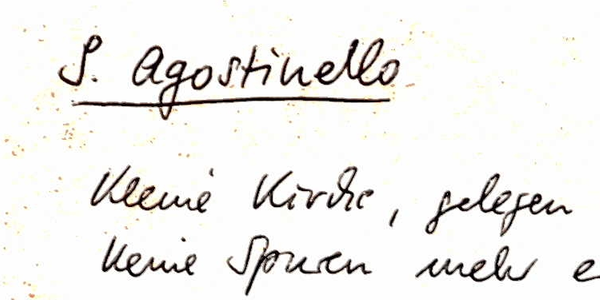 S. Agostinello
Kleine Kirche, gelegen
keine Spuren mehr e